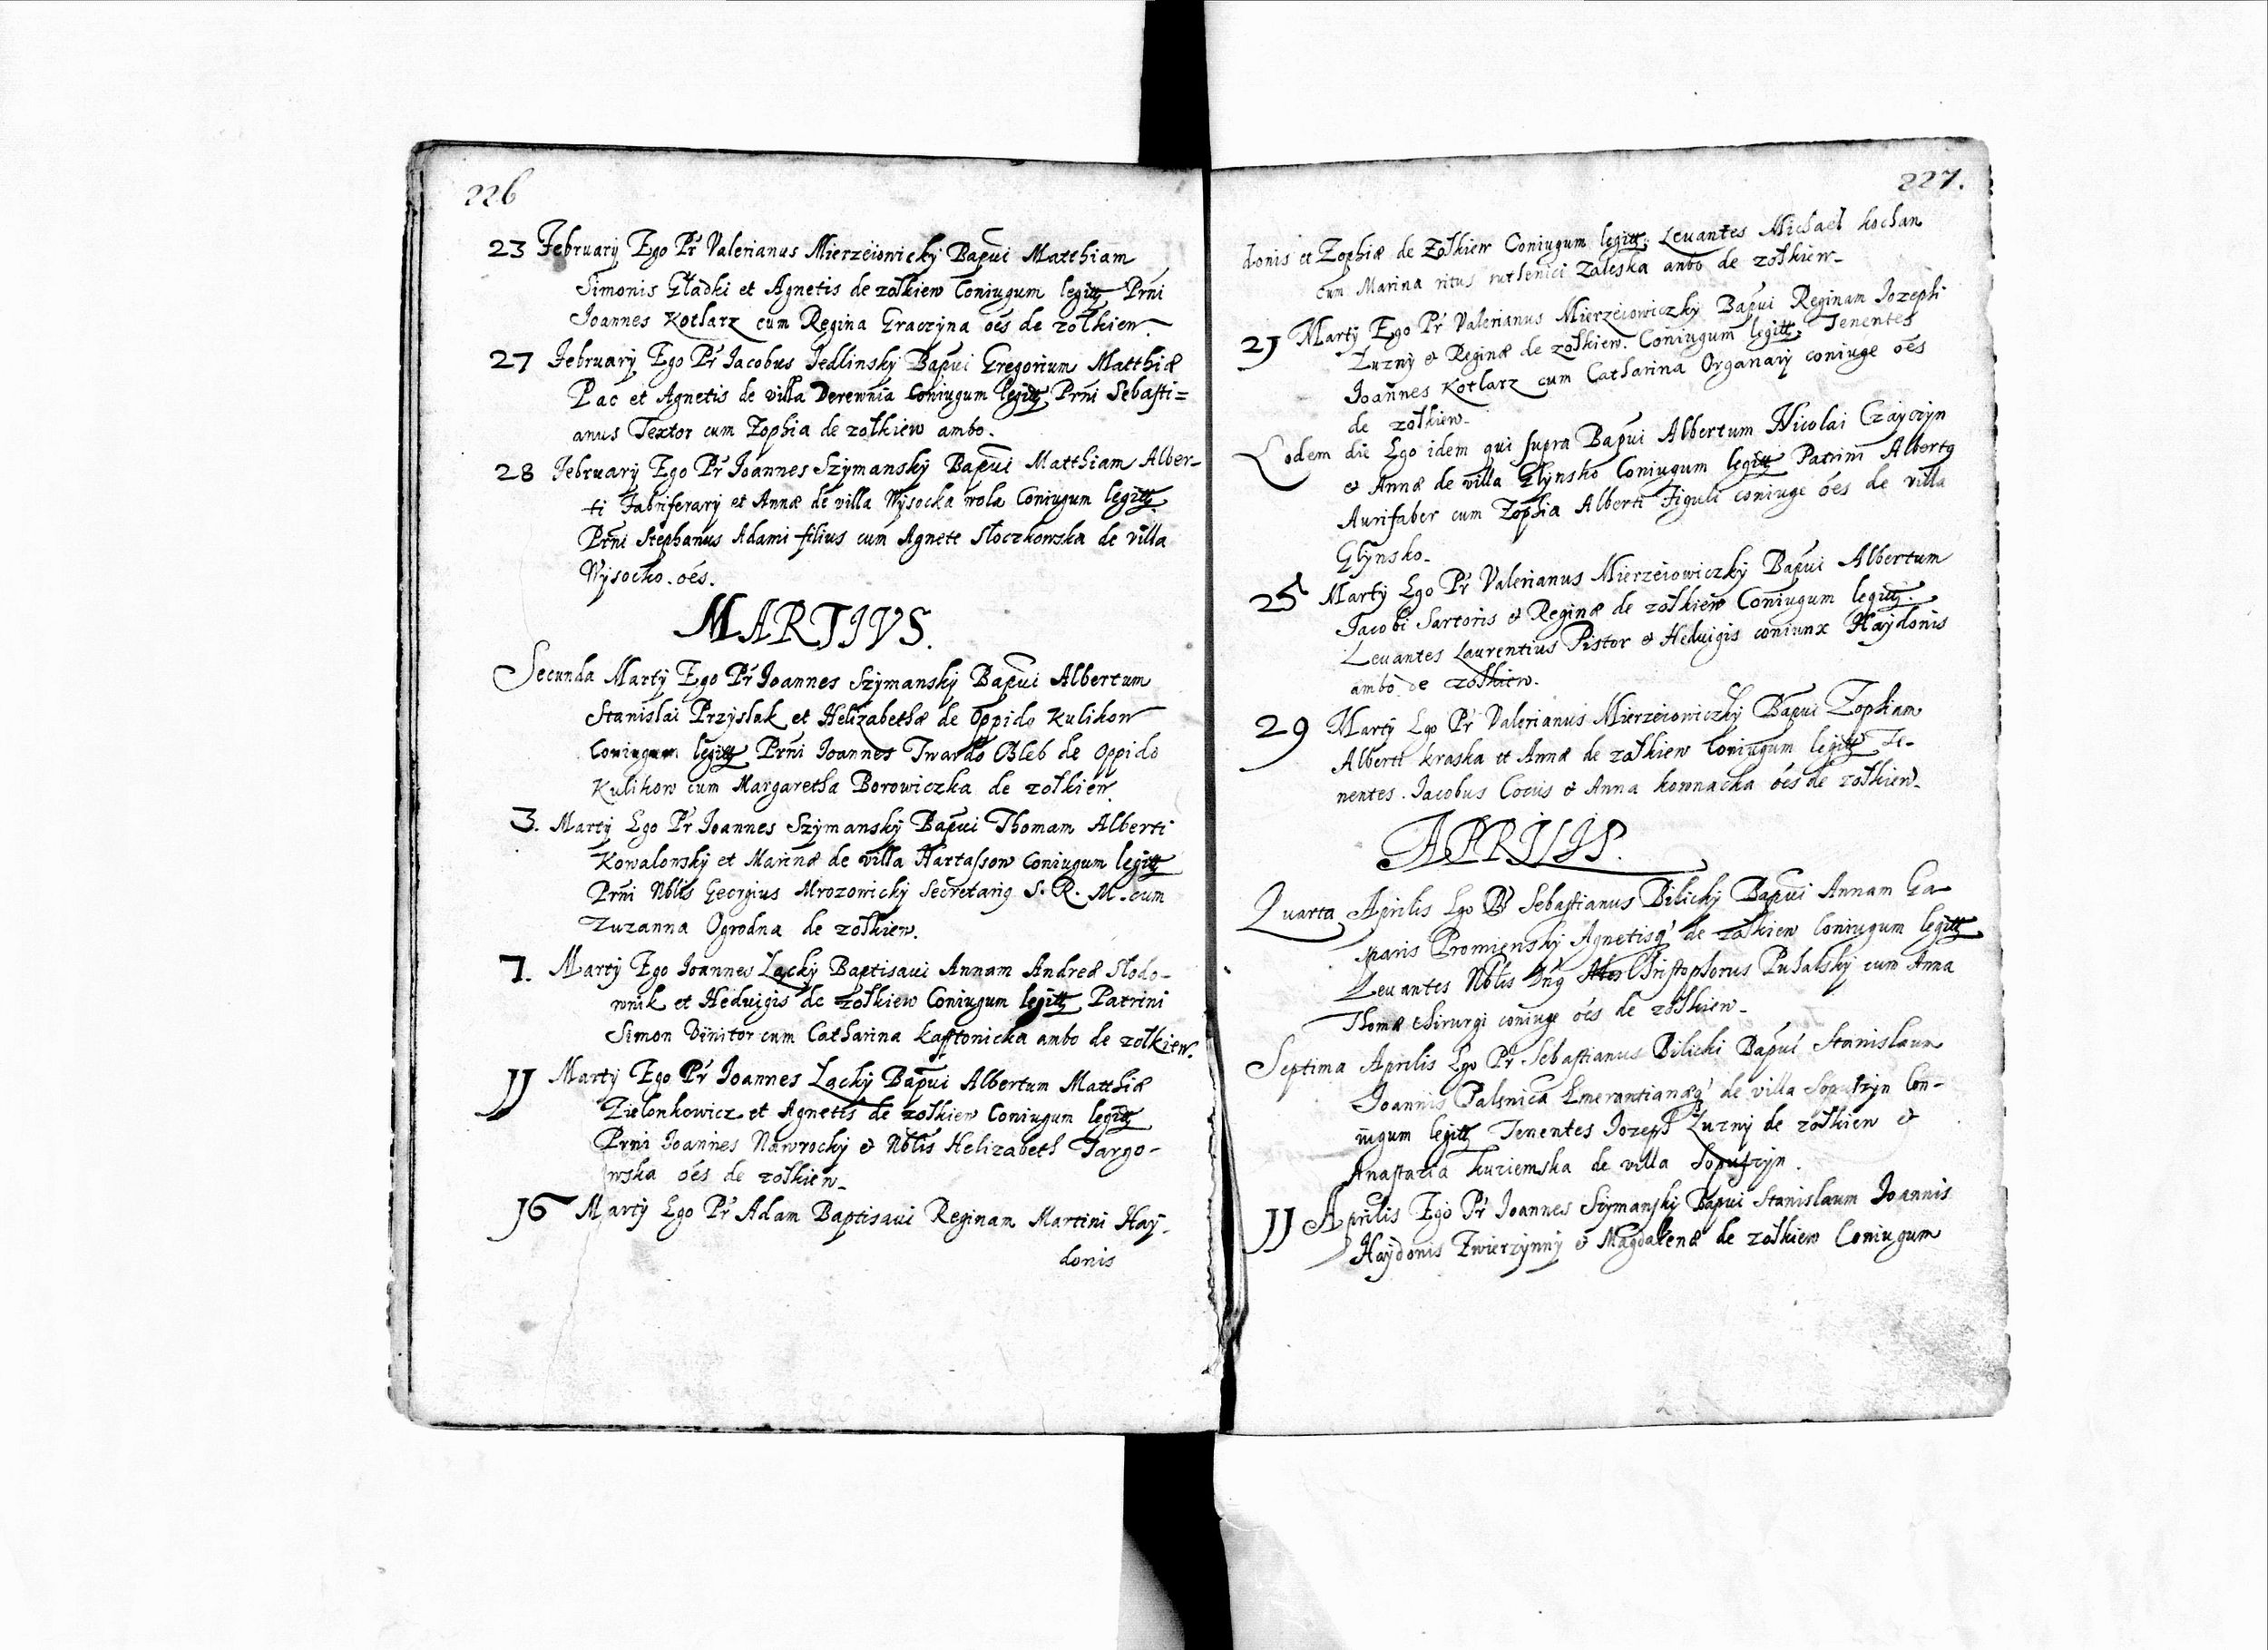 226
23 February Ego Pr Valerianus Mierzeiowicky Bapui Matthiam
Simonis Gładki et Agnetis de zołkiew Coniugum legitt Prni
Joannes Kotlarz cum Regina Graczyna oes de zołkiew.
27 February Ego Pr Jacobus Jedlinsky Bapui Gregorium Matthiæ
Pac et Agnetis de villa Derewnia Coniugum legitt Prni Sebasti=
anus Textor cum Zophia de zołkiew ambo.
28 February Ego Pr Joannes Szymansky Bapui Matthiam Alber-
ti Fabriferary et Annæ de villa Wysocka wola Coniugum legitt
Prni Stephanus Adami filius cum Agnete Słoczkowska de villa
Wysocko. oes.
MARTIVS.
Secunda Marty Ego Pr Joannes Szymansky Bapui Albertum
Stanislai Przysłak et Helizabethæ de Oppido Kulikow
Coniugum legitt Prni Joannes Twardo Chleb de Oppido
Kulikow cum Margaretha Borowiczka de zołkiew
3. Marty Ego Pr Joannes Szymansky Bapui Thomam Alberti
Kowalonsky et Marinæ de villa Hartassow Coniugum legitt
Prni Nblis Georgius Mrozowicky Secretarig S. R. M. cum
Zuzanna Ogrodna de zołkiew.
7. Marty Ego Joannes Lącky Baptisaui Annam Andreæ Słodo-
wnik et Heduigis de zołkiew Coniugum legitt Patrini
Simon Vinitor cum Catharina kaftonicka ambo de zołkiew.
JJ Marty Ego Pr Joannes Lącky Bapui Albertum Matthiæ
Zielonkowicz et Agnetis de zołkiew Coniugum legitt
Prni Joannes Nawrocky & Nblis Helizabeth Targo-
wska oes de zołkiew.
J6 Marty Ego Pr Adam Baptisaui Reginam Martini Hay-
donis
227.
donis et Zophiæ de Zołkiew Coniugum legitt. Leuantes Michael kochan
cum Marina ritus ruthenici Zaleska ambo de zołkiew.
2J Marty Ego Pr Valerianus Mierzeiowiczky Bapui Reginam Jozephi
Luzny & Reginæ de zołkiew. Coniugum legitt. Tenentes
Joannes Kotlarz cum Catharina Organary coniuge oes
de zołkiew.
Eodem die Ego idem qui supra Bapui Albertum Nicolai Czayczyn
& Annæ de villa Glynsko Coniugum legitt Patrini Albertg
Aurifaber cum Zophia Alberti Figuli coniuge oes de villa
Glynsko.
25 Marty Ego Pr Valerianus Mierzeiowiczky Bapui Albertum
Jacobi Sartoris & Reginæ de zołkiew Coniugum legitt.
Leuantes Laurentius Pistor & Heduigis coniunx Haydonis
ambo de zołkiew.
29 Marty Ego Pr Valerianus Mierzeiowiczky Bapui Zophiam
Alberti kraska et Annæ de zołkiew Coniugum legitt Te-
nentes. Jacobus Cocus & Anna kownacka oes de zołkiew.
APRILIS.
Quarta Aprilis Ego Pr Sebastianus Bilicky Bapui Annam Ga-
sparis Promiensky Agnetisq de zołkiew Coniugum legitt
Leuantes Nblis Dng Christophorus Puhalsky cum Anna
Thomæ Chirurgi coniuge oes de zołkiew.
Septima Aprilis Ego Pr Sebastianus Bilicki Bapui Stanislaum
Joannis Palsnica Emerantianæq de villa Soputzyn Con-
iugum legitt Tenentes Jozeph Luzny de zołkiew &
Anastazia kuziemska de villa Soputzyn.
JJ Aprilis Ego Pr Joannes Szymansky Bapui Stanislaum Joannis
Haydonis Zwierzynny & Magdalenæ de zołkiew Coniugum